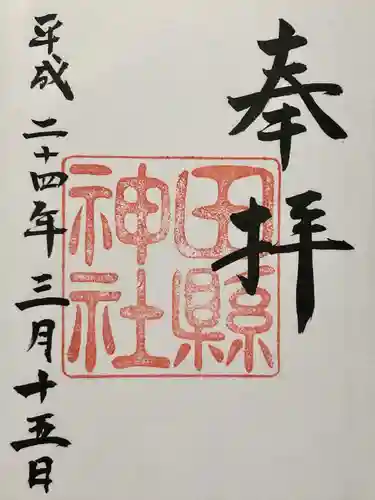 奉拝
田縣
神社
平成二十四年三月十五日